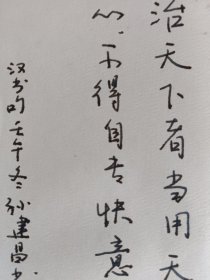 治天下者当用天
心，不得自专快意
汉书句壬午冬孙建昌书